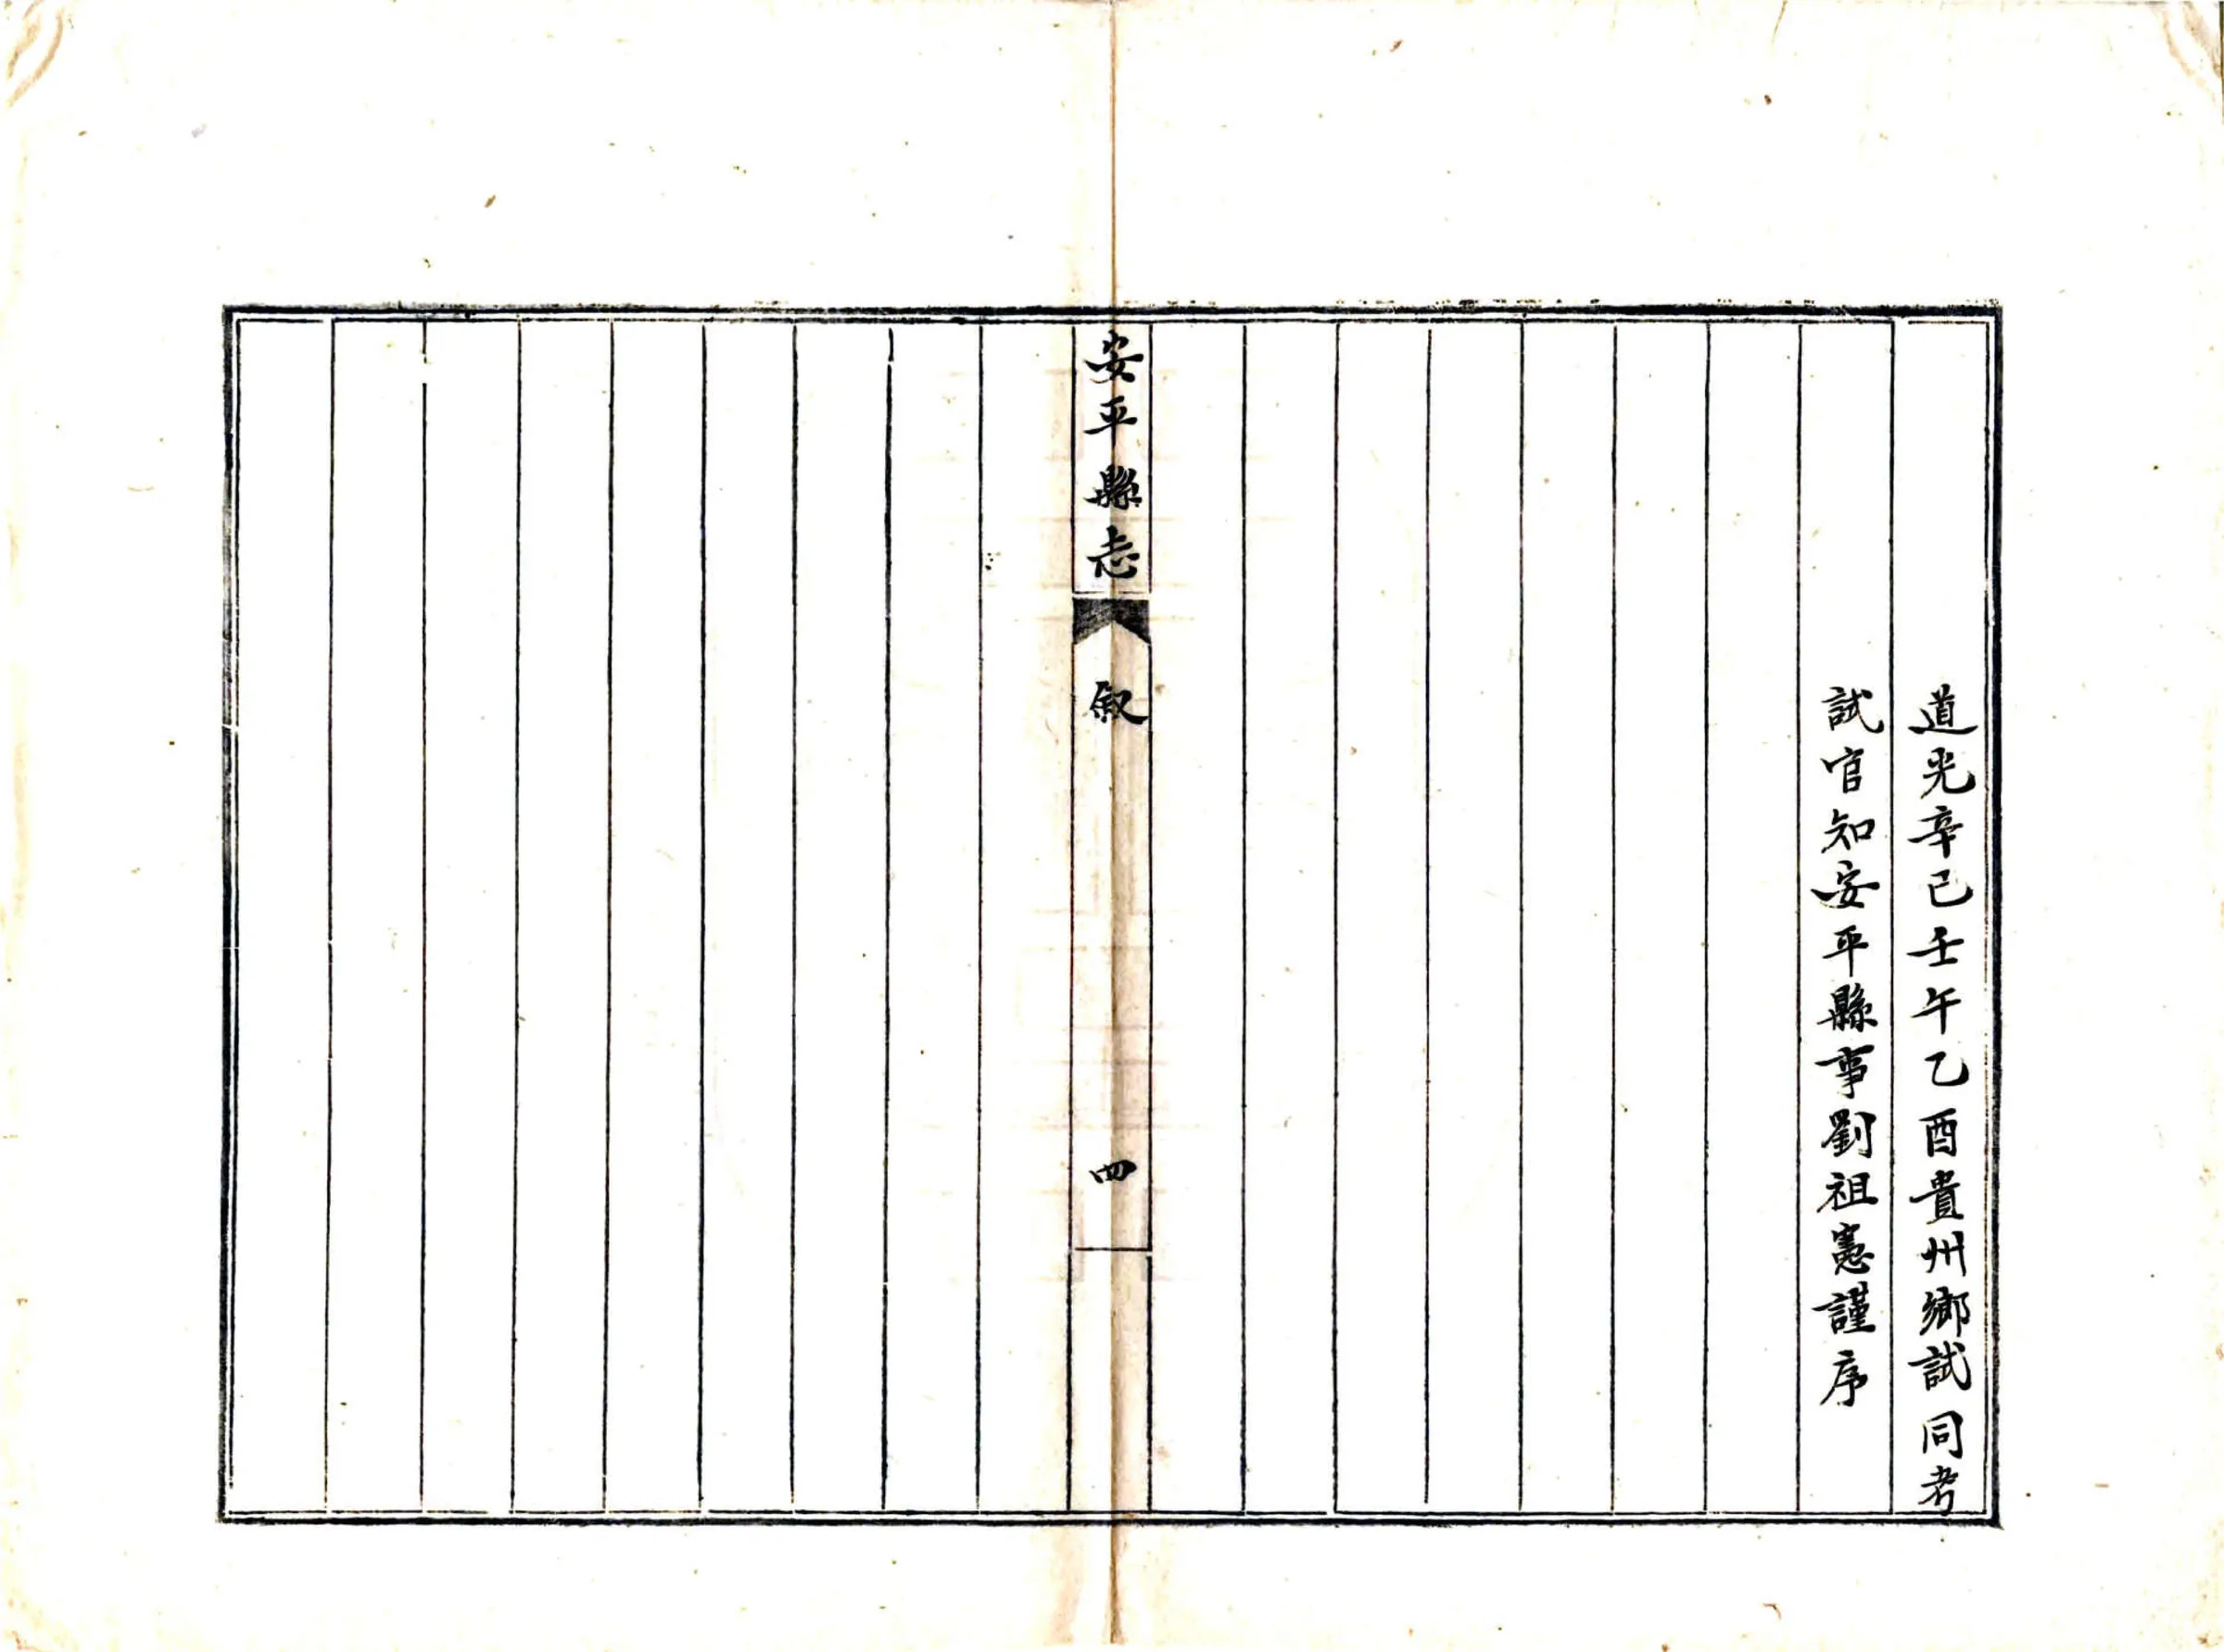 道光辛巳壬午乙酉貴州鄉試同考
試官知安平縣事劉祖憲謹序
安平縣志
叙
四